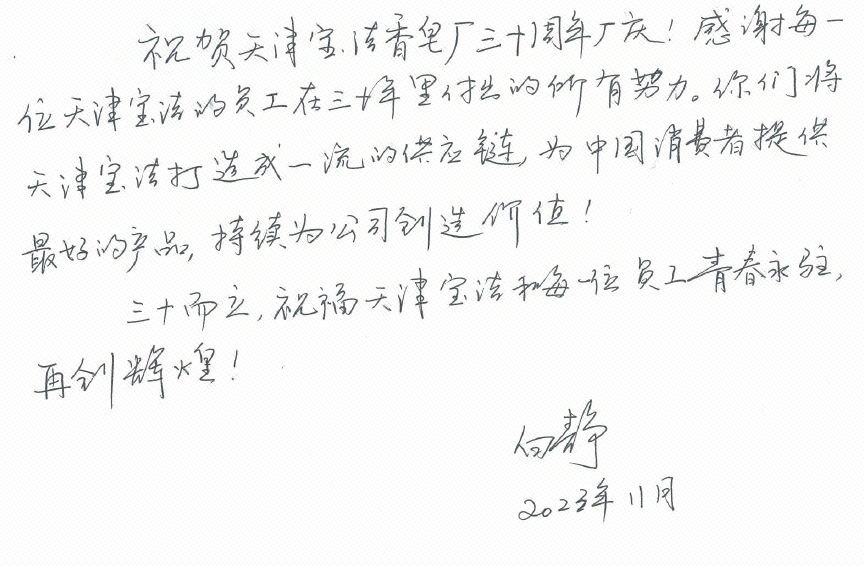 祝贺天津宝洁香皂厂三十周年厂庆！感谢每一
位天津宝洁的员工在三十年里付出的所有努力。你们将
天津宝洁打造成一流的供应链，为中国消费者提供
最好的产品，持续为公司创造价值！
三十而立，祝福天津宝洁和每一位员工青春永驻，
再创辉煌！
白静
2023年11月